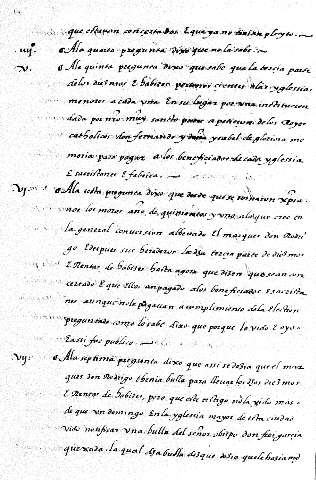 que estavan concertados E que ya no tenian pleyto
iiijº A la quarta pregunta dixo que no la sabe
V A la quinta pregunta dixo que sabe que la tercia parte
de los diezmos E habizes pertenescientes a las yglesias
menores a cada una En su lugar por una institucion
dada por nro muy sancto padre a peticion de los Reyes
catholicos don fernando y doña ysabel de gloriosa me
moria para pagar a los beneficiados de cada yglesia
E sacristanes E fabrica
VI A la sesta pregunta dixo que desde que se tornaron xpia
nos los moros año de quinientos y una a lo que cree en
la general conversion a avido El marques don Rodri
go E despues sus herederos la dha tercia parte de diezmos
E Rentas de habizes hasta agora que dizen que se an con
certado E que ellos an pagado a los beneficiados E sacrista
nes aunque no le pagavan a cumplimiento de la Election
preguntado como lo sabe dixo que porque lo vido E oyo
E assi fue publico
VII A la septima pregunta dixo que assi se dezia que el mar
ques don Rodrigo thenia bulla para llevar los dhos diezmos
E Rentas de habizes, pero que este testigo no la vido mas
de que un domingo En la yglesia mayor de esta ciudad
vido notificar una bulla del señor obispo don frey garcia
quexada la qual dha bulla dizque dezia que le hazia md